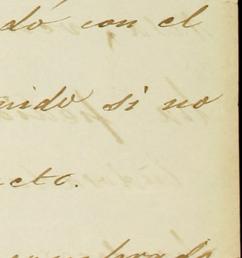 dó con el
nido si no
cto.